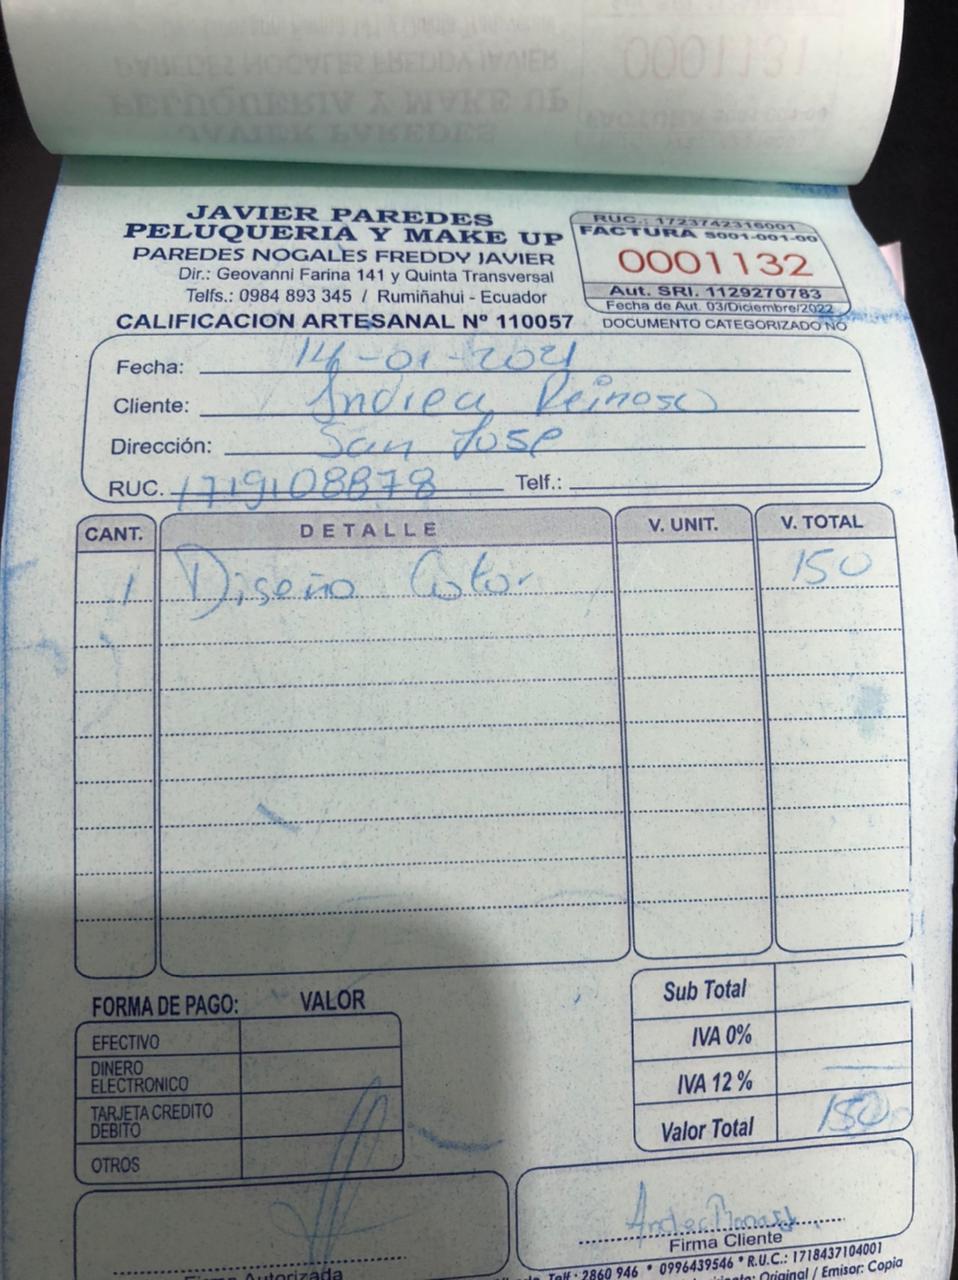 0001131
PELUQUERIA Y MAKE UP
JAVIER PAREDES
PAREDES NOGALES FREDDY JAVIER
JAVIER PAREDES
PELUQUERIA Y MAKE UP
PAREDES NOGALES FREDDY JAVIER
Dir.: Geovanni Farina 141 y Quinta Transversal
Telfs.: 0984 893 345 / Rumiñahui - Ecuador
CALIFICACION ARTESANAL Nº 110057
RUC.: 1723742316001
FACTURA S001-001-00
0001132
Aut. SRI. 1129270783
Fecha de Aut. 03/Diciembre/2022
DOCUMENTO CATEGORIZADO NO
Fecha: 14-01-2021
Cliente: Andrea Reinoso
Dirección: San Jose
RUC. 1719108878 Telf.:
CANT. DETALLE V. UNIT. V. TOTAL
1 Diseño Color 150
FORMA DE PAGO: VALOR
EFECTIVO
DINERO ELECTRONICO
TARJETA CREDITO DEBITO
OTROS
Sub Total
IVA 0%
IVA 12 %
Valor Total 150
Firma Autorizada
Firma Cliente
Telf.: 2860 946 * 0996439546 * R.U.C.: 1718437104001
Original / Emisor: Copia